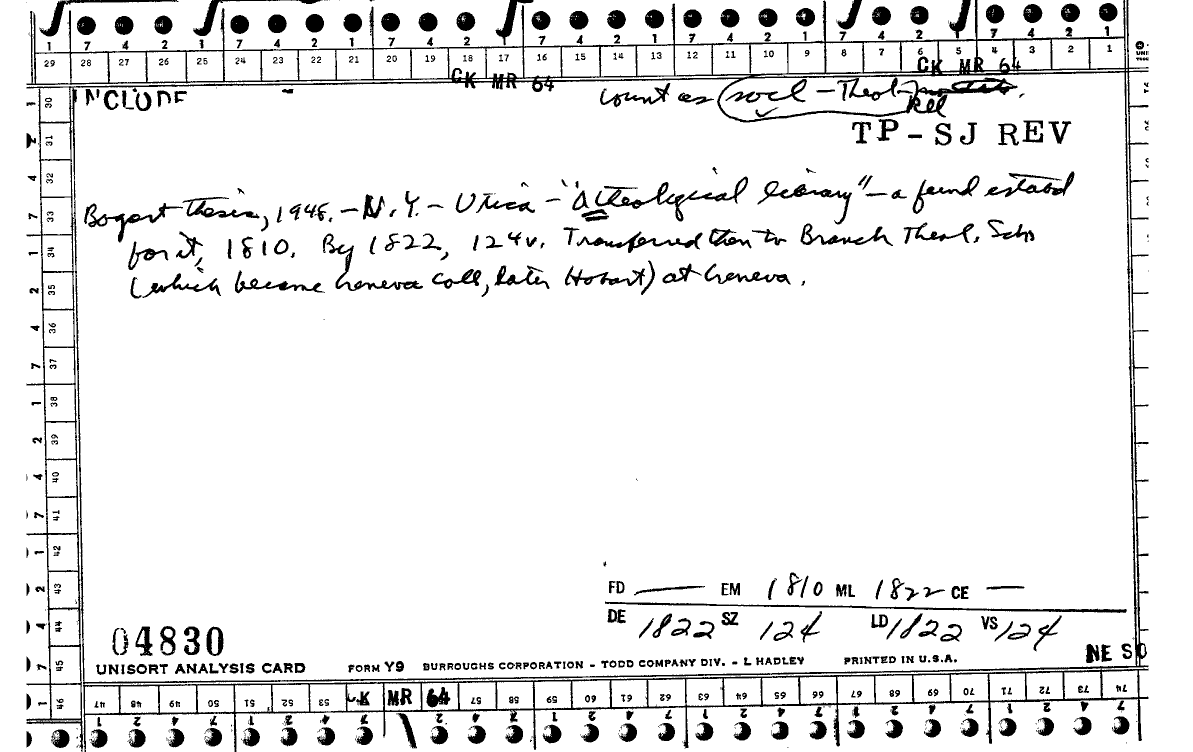 7 4 2 1 7 4 2 1 7 4 2 1 7 4 2 1 7 4 2 1 7 4 2 1
29 28 27 26 25 24 23 22 21 20 19 18 17 16 15 14 13 12 11 10 9 8 7 6 5 4 3 2 1
CK MR 64 CK MR 64
INCLUDE
count as socl - Theol
Rel
TP-SJ REV
Bogart thesis, 1948. - N.Y. - Utica - "A theological library" - a fund estabd
for it, 1810. By 1822, 124v. Transferred then to Branch Theol. Scho
(which became Geneva Coll, later Hobart) at Geneva.
30
31
32
33
34
35
36
37
38
39
40
41
42
43
44
45
46
FD — EM 1810 ML 1822 CE —
DE 1822 SZ 124 LD 1822 VS 124
04830
NE SO
UNISORT ANALYSIS CARD FORM Y9 BURROUGHS CORPORATION - TODD COMPANY DIV. - L HADLEY PRINTED IN U.S.A.
CK MR 64
47 48 49 50 51 52 53 57 58 59 60 61 62 63 64 65 66 67 68 69 70 71 72 73 74